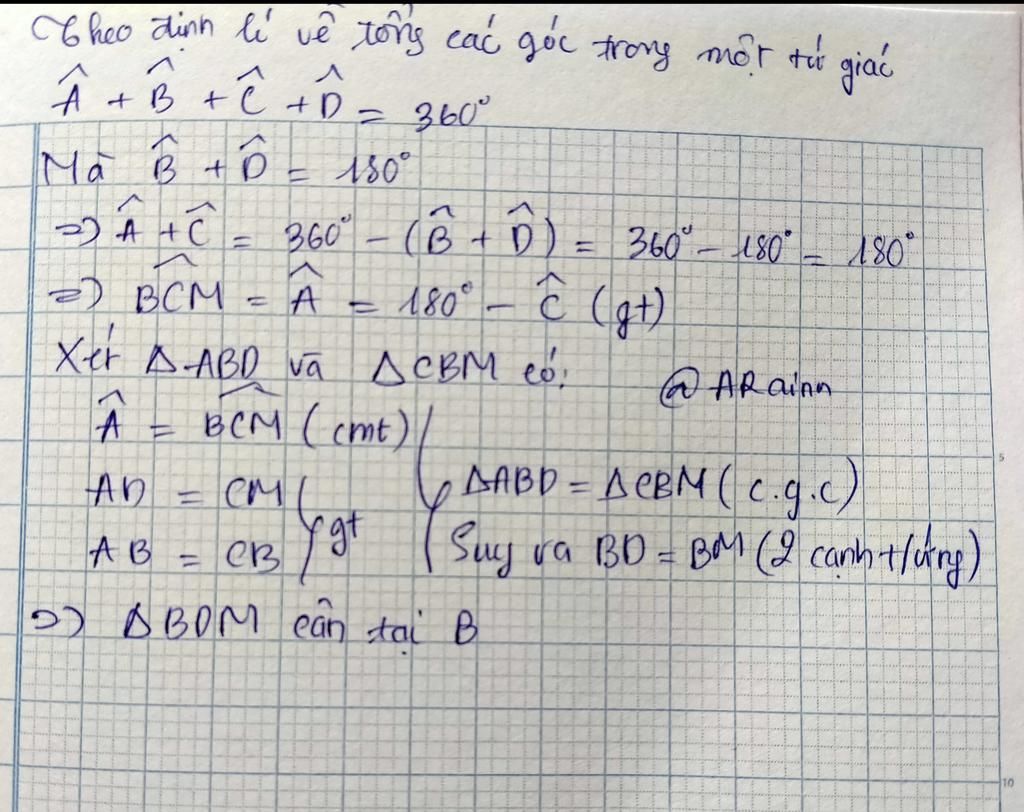 Theo định lí về tổng các góc trong một tứ giác
Â + B̂ + Ĉ + D̂ = 360°
Mà B̂ + D̂ = 180°
=> Â + Ĉ = 360° - (B̂ + D̂) = 360° - 180° = 180°
=> B̂CM = Â = 180° - Ĉ (gt)
Xét ΔABD và ΔCBM có:
@ARainn
Â = B̂CM (cmt)
AD = CM
AB = CB
gt
ΔABD = ΔCBM (c.g.c)
Suy ra BD = BM (2 cạnh t/ứng)
=> ΔBDM cân tại B
5
10